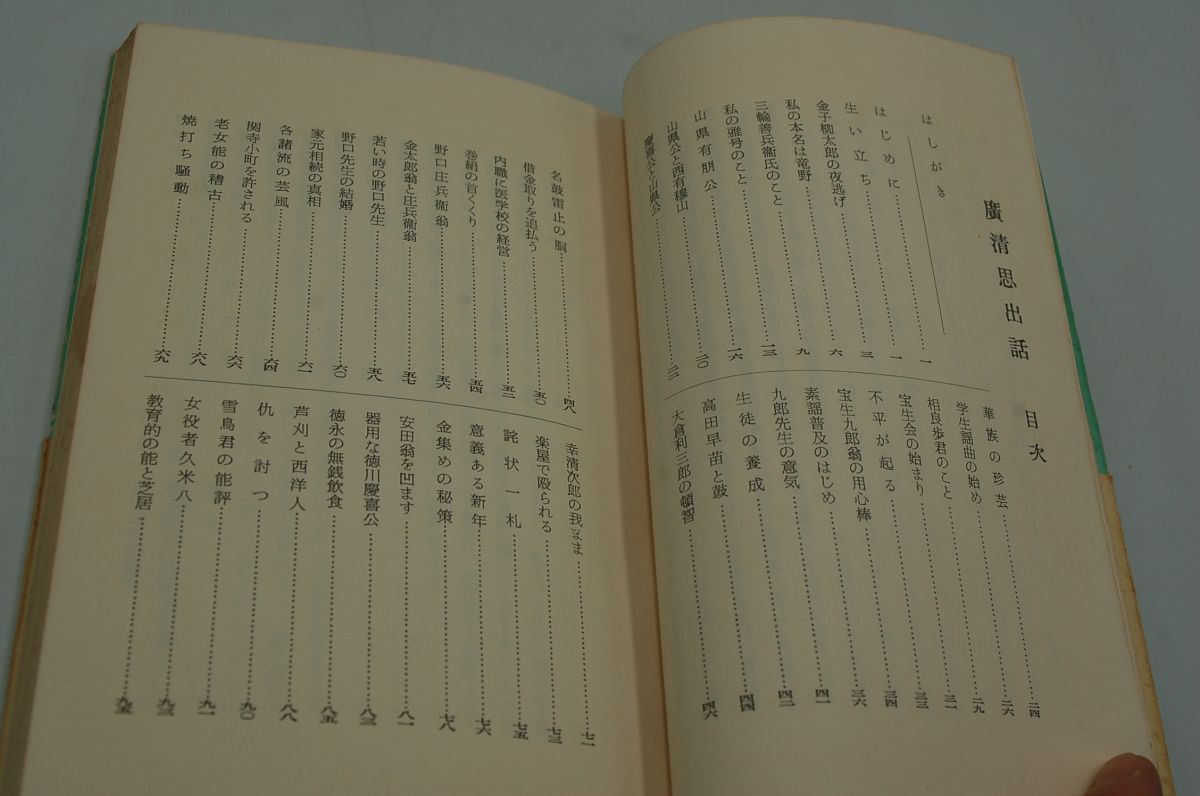 廣清思出話　目次
はしがき 一
はじめに 一
生い立ち 三
金子柳太郎の夜逃げ 六
私の本名は竜野 九
三輪善兵衞氏のこと 一三
私の雅号のこと 一六
山県有朋公 二〇
山県公と西有穆山
慶喜公と山県公 二三
華族の珍芸 二四
学生謡曲の始め 二六
相良歩君のこと 二九
宝生会の始まり 三一
不平が起る 三三
宝生九郎翁の用心棒 三四
素謡普及のはじめ 三六
九郎先生の意気 四一
生徒の養成 四二
高田早苗と鼓 四四
大倉利三郎の頓智 四六
名鼓雷止の胴 四八
借金取りを追払う 五〇
内職に医学校の経営 五二
巻絹の首くくり 五四
野口庄兵衞翁 五六
金太郎翁と庄兵衞翁 五七
若い時の野口先生 五八
野口先生の結婚 六〇
家元相続の真相 六一
各諸流の芸風 六四
関寺小町を許される 六六
老女能の稽古 六八
焼打ち騒動 六九
幸清次郎の我まま 七一
楽屋で殴られる 七三
詫状一札 七五
意義ある新年 七六
金集めの秘策 七八
安田翁を凹ます 八一
器用な徳川慶喜公 八三
徳永の無銭飲食 八五
芦刈と西洋人 八八
仇を討つ 九〇
雪鳥君の能評 九一
女役者久米八 九三
教育的の能と芝居 九五